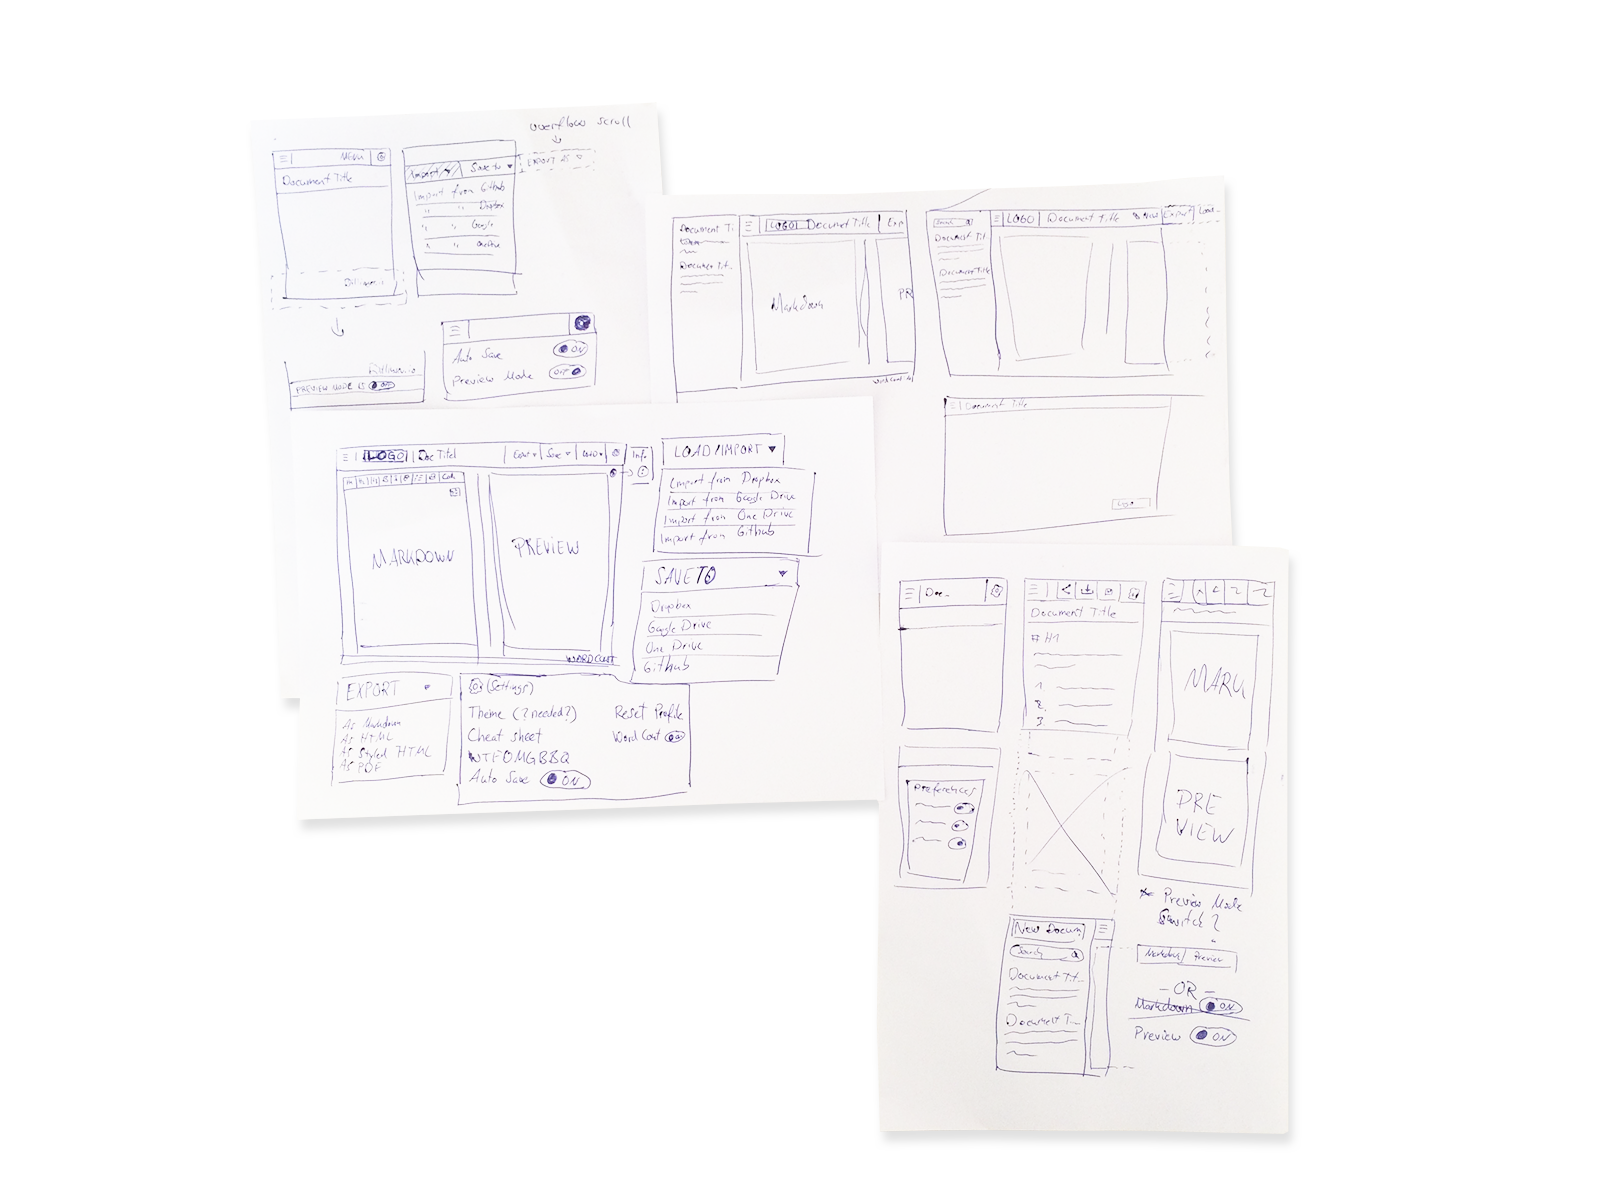 overflow scroll
MENU
Document Title
Import
Save to
EXPORT AS
Import from Github
" " Dropbox
" " Google
" " OneDrive
Dillinger.io
Dillinger.io
PREVIEW MODE IS ON
Auto Save ON
Preview Mode OFF
Document Ti..
Document Tit..
LOGO Document Title Exp
Markdown
PR
Word Count
Search
LOGO Document Title New Export Load..
Document Tit..
Document Title
Document Title
LOGO Doc Titel
Save
Info
MARKDOWN
PREVIEW
WORD COUT
LOAD/IMPORT
Import from Dropbox
Import from Google Drive
Import from One Drive
Import from Github
SAVE TO
Dropbox
Google Drive
One Drive
Github
EXPORT
As Markdown
As HTML
As Styled HTML
As PDF
(Settings)
Theme (?needed?) Reset Profile
Cheat sheet Word Cout ON
WTFOMGBBQ
Auto Save ON
Doc..
Document Title
# H1
1.
2.
3.
MARK
Preferences
PRE
VIEW
* Preview Mode
Switch?
New Docum.
Search
Document Tit..
Document T...
Markdown/ Preview
- OR -
Markdown ON
Preview ON